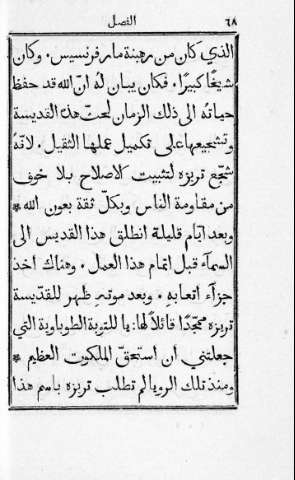 ٦٨ الفصل
الذي كان من رهبنة مار فرنسيس. وكان
شيخًا كبيرًا. فكان يبان له انّ الله قد حفظ
حياته الى ذلك الزمان لحثّ هذه القديسة
وتشجيعها على تكميل عملها الثقيل. لانّهُ
شجّع تريزه لتثبيت الاصلاح بلا خوف
من مقاومة الناس وبكلّ ثقة بعون الله *
وبعد ايّام قليلة انطلق هذا القديس الى
السمآء قبل اتمام هذا العمل. وهناك اخذ
جزآء اتعابه. وبعد موته ظهر للقدّيسة
تريزه ممجّدًا قائلاً لها: يا للتوبة الطوباوية التي
جعلتني ان استحقّ الملكوت العظيم *
ومنذ تلك الرويا لم تطلب تريزه باسم هذا